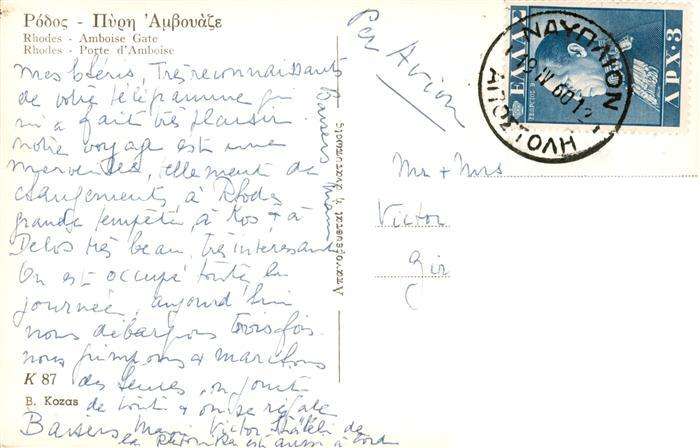 Ρόδος - Πύρη Ἀμβουάζε
Rhodes - Amboise Gate
Rhodes - Porte d'Amboise
Très reconnaissants
de votre télégramme qui
m'a fait très plaisir
notre voyage est une
tellement de
changements, à Rhodes
grande tempête, à Kos + à
Delos très beau, très intéressant
On est occupé toute la
journée, aujourd'hui
nous débarquons trois fois.
nous grimpons & marchons
des heures, on jouit
de tout & on se régale
Baisers
est aussi à bord
Baisers
K 87
B. Kozas
Par Avion
ΕΛΛΑΣ
ΔΡΧ·3
ΝΑΥΠΛΙΟΝ
ΑΠΟΣΤΟΛΗ
Mr + Mrs
Victor